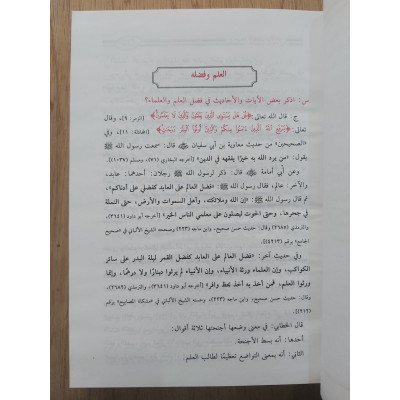 العلم وفضله
س: اذكر بعض الآيات والأحاديث في فضل العلم والعلماء؟
ج: قال الله تعالى: ﴿قُلْ هَلْ يَسْتَوِي الَّذِينَ يَعْلَمُونَ وَالَّذِينَ لَا يَعْلَمُونَ﴾ [الزمر: ٩]، وقال
تعالى: ﴿يَرْفَعِ اللَّهُ الَّذِينَ آمَنُوا مِنكُمْ وَالَّذِينَ أُوتُوا الْعِلْمَ دَرَجَاتٍ﴾ [المجادلة: ١١]، وفي
«الصحيحين» من حديث معاوية بن أبي سفيان ﷺ قال: سمعت رسول الله ﷺ
يقول: «من يرد الله به خيرًا يفقهه في الدين» [أخرجه البخاري (٧١)، ومسلم (١٠٣٧)].
وعن أبي أمامة قال: ذكر لرسول الله ﷺ رجلان: أحدهما: عابد،
والآخر: عالم، فقال رسول الله ﷺ: «فضل العالم على العابد كفضلي على أدناكم»،
ثم قال رسول الله ﷺ: «إن الله وملائكته، وأهل السموات والأرض، حتى النملة
في جحرها، وحتى الحوت ليصلون على معلمي الناس الخير» [أخرجه أبو داود (٣٦٤١)
والترمذي (٢٦٨٢)، وقال: حديث حسن صحيح، وابن ماجه (٢٢٣) وصححه الشيخ الألباني في «صحيح
الجامع» برقم (٤٢١٣)].
وفي حديث آخر: «فضل العالم على العابد كفضل القمر ليلة البدر على سائر
الكواكب، وإن العلماء ورثة الأنبياء، وإن الأنبياء لم يرثوا دينارًا ولا درهمًا، إنما
ورثوا العلم، فمن أخذ به أخذ بحظ وافر» [أخرجه أبو داود (٣٦٤١)، والترمذي (٢٦٨٢)،
وقال: حديث حسن صحيح، وابن ماجه (٢٢٣)، وحسنه الشيخ الألباني في «مشكاة المصابيح» برقم
(٢١٢)].
قال الخطابي: في معنى وضعها أجنحتها ثلاثة أقوال:
أحدها: أنه بسط الأجنحة.
الثاني: أنه بمعنى التواضع تعظيمًا لطالب العلم.